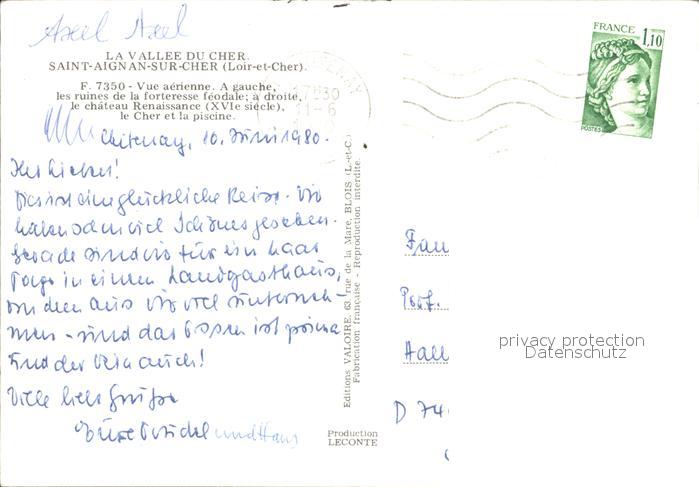 Axel Axel
LA VALLEE DU CHER
SAINT-AIGNAN-SUR-CHER (Loir-et-Cher).
F. 7350 - Vue aérienne. A gauche,
les ruines de la forteresse féodale; à droite,
le château Renaissance (XVIe siècle),
le Cher et la piscine.
Chitenay, 10. Juni 1980.
Ihr Lieben!
Das ist eine glückliche Reise. Wir
haben schon viel Schönes gesehen.
Gerade sind wir für ein paar
Tage in einem Landgasthaus,
von dem aus wir viel unterneh-
men - und das Essen ist prima
und der Wein auch!
Viele liebe Grüße
und Hans
Editions VALOIRE, 63 rue de la Mare, BLOIS (L.-et-C.)
Fabrication française - Reproduction interdite.
Production
LECONTE
FRANCE
1,10
POSTES
17H30
11-6
Fam
Prof.
D 74
privacy protection
Datenschutz